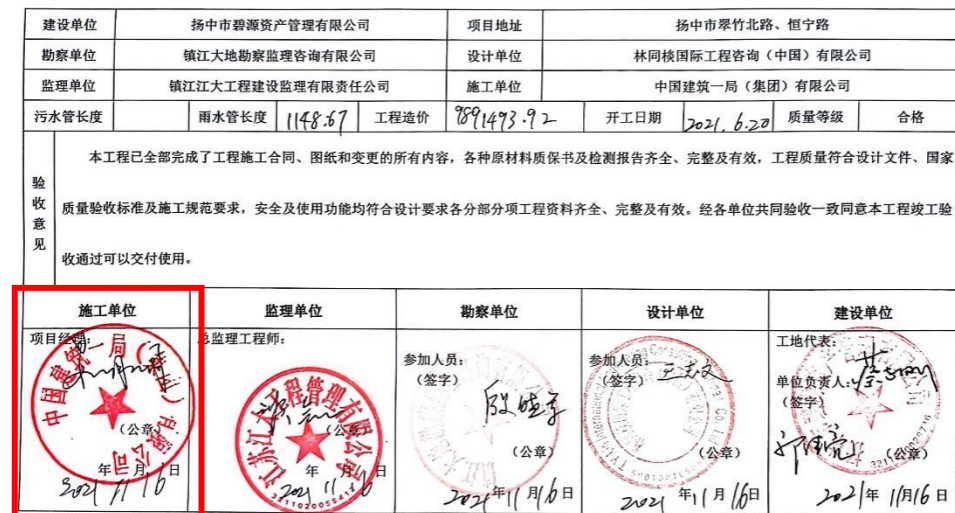 建设单位 扬中市碧源资产管理有限公司 项目地址 扬中市翠竹北路、恒宁路
勘察单位 镇江大地勘察监理咨询有限公司 设计单位 林同棪国际工程咨询（中国）有限公司
监理单位 镇江江大工程建设监理有限责任公司 施工单位 中国建筑一局（集团）有限公司
污水管长度 雨水管长度 1148.67 工程造价 9891493.92 开工日期 2021.6.20 质量等级 合格
验收意见
本工程已全部完成了工程施工合同、图纸和变更的所有内容，各种原材料质保书及检测报告齐全、完整及有效，工程质量符合设计文件、国家
质量验收标准及施工规范要求，安全及使用功能均符合设计要求各分部分项工程资料齐全、完整及有效。经各单位共同验收一致同意本工程竣工验
收通过可以交付使用。
施工单位 监理单位 勘察单位 设计单位 建设单位
项目经理： 总监理工程师： 工地代表：
参加人员： 参加人员：
（签字） （签字） 王志文 单位负责人：
（签字）
中国建筑一局（集团）有限公司
江苏江大工程管理有限公司
（公章） （公章） （公章） （公章） （公章）
2021年11月16日 2021年11月16日 2021年11月16日 2021年11月16日 2021年11月16日